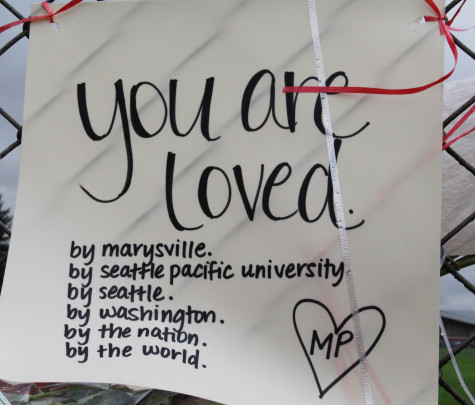 you are
loved.
by marysville.
by seattle pacific university.
by seattle.
by washington.
by the nation.
by the world.
MP